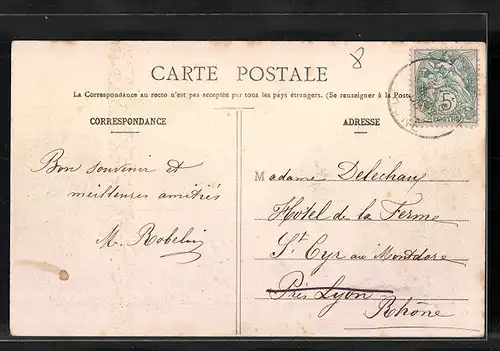 8
CARTE POSTALE
La Correspondance au recto n'est pas acceptée par tous les pays étrangers. (Se renseigner à la Poste
CORRESPONDANCE
ADRESSE
5c
POSTES
Bon souvenir et
meilleures amitiés
M. Robelin
Madame Deléchaux
Hotel de la Ferme
St Cyr au Montdore
Près Lyon
Rhône